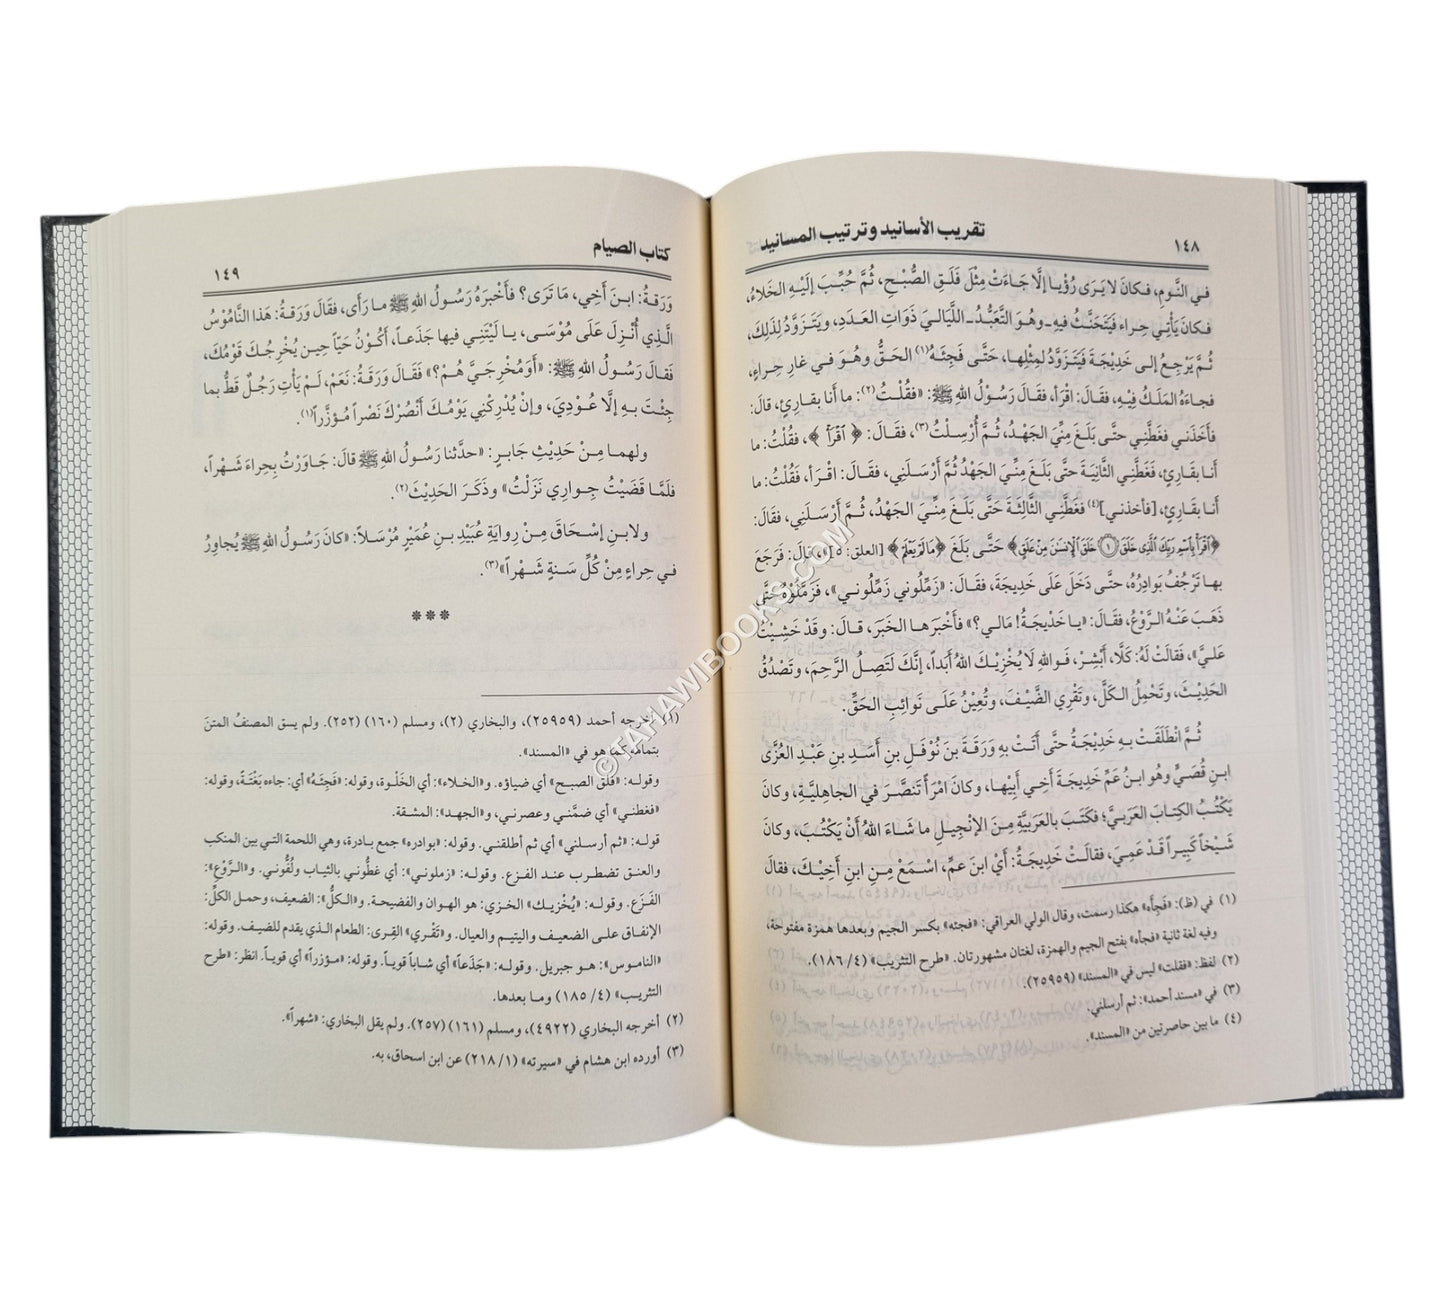 ١٤٨
تقريب الأسانيد وترتيب المسانيد
في النَّومِ، فكانَ لا يَرَى رُؤْيا إلَّا جَاءَتْ مِثْلَ فَلَقِ الصُّبْحِ، ثُمَّ حُبِّبَ إلَيْهِ الخَلاءُ،
فكانَ يَأْتِي حِراء فَيَتَحَنَّثُ فيهِ ـ وهُوَ التَّعَبُّدُ ـ اللَّيَاليَ ذَوَاتِ العَدَدِ، ويَتَزَوَّدُ لِذَلِكَ،
ثُمَّ يَرْجِعُ إلى خَدِيْجَةَ فَيَتَزَوَّدُ لمِثْلِها، حَتَّى فَجِئَهُ(١) الحَقُّ وهُوَ في غَارِ حِراءٍ،
فجاءَهُ المَلَكُ فِيْهِ، فقَالَ: اقْرَأ، فقَالَ رَسُوْلُ اللهِ ﷺ: «فقُلْتُ(٢): ما أَنا بقارِئٍ، قالَ:
فَأَخَذَني فغَطَّنِي حتَّى بَلَغَ مِنِّيَ الجَهْدُ، ثُمَّ أُرْسِلْتُ(٣)، فقَالَ: ﴿ اقْرَأْ ﴾، فقُلْتُ: ما
أَنا بقَارِئٍ، فَغَطَّنِي الثَّانِيَةَ حتَّى بَلَغَ مِنِّيَ الجَهْدُ ثُمَّ أَرْسَلَنِي، فقَالَ: اقْرَأ، فقُلْتُ: ما
أَنا بقَارِئٍ، [فأخذني](٤) فغَطَّنِي الثَّالِثةَ حَتَّى بَلَغَ مِنِّيَ الجَهْدُ، ثُمَّ أَرْسَلَنِي، فقَالَ:
﴿اقْرَأْ بِاسْمِ رَبِّكَ الَّذِي خَلَقَ ۝١ خَلَقَ الْإِنْسَنَ مِنْ عَلَقٍ﴾ حَتَّى بَلَغَ ﴿مَا لَمْ يَعْلَمْ﴾ [العلق: ٥]»، قالَ: فَرَجَعَ
بها تَرْجُفُ بَوادِرُهُ، حتَّى دَخَلَ عَلَى خَدِيجَةَ، فقَالَ: «زَمِّلُوني زَمِّلُوني»، فَزَمَّلُوْهُ حَتَّى
ذَهَبَ عَنْهُ الرَّوْعُ، فقَالَ: «يا خَدْيجَةُ! مَالي؟» فأَخْبَرَها الخَبَرَ، قالَ: وقَدْ خَشِيْتُ
عَلَيَّ»، فَقالَتْ لَهُ: كَلَّا، أَبْشِرْ، فَواللهِ لَا يُخْزِيْكَ اللهُ أَبَداً، إنَّكَ لَتَصِلُ الرَّحِمَ، وتَصْدُقُ
الحَدِيْثَ، وتَحْمِلُ الكَلَّ، وتَقْرِي الضَّيْفَ، وتُعِيْنُ عَلَى نَوائِبِ الحَقِّ.
ثُمَّ انْطَلَقَتْ بِهِ خَدِيْجَةُ حتَّى أَتَتْ بهِ وَرَقَةَ بنَ نَوْفَلِ بنِ أَسَدِ بنِ عَبْدِ العُزَّى
ابنِ قُصَيٍّ وهُو ابنُ عَمِّ خَدِيْجَةَ أَخِي أَبِيْها، وكانَ امْرَأً تَنصَّرَ في الجاهِليَّةِ، وكانَ
يَكْتُبُ الكِتابَ العَرَبيَّ؛ فكَتَبَ بالعَرَبيَّةِ مِنَ الإنْجِيلِ ما شَاءَ اللهُ أَنْ يَكْتُبَ، وكانَ
شَيْخاً كَبِيراً قَدْ عَمِيَ، فقالَتْ خَدِيجَةُ: أَيْ ابنَ عمِّ، اسْمَعْ مِنِ ابنِ أَخِيْكَ، فقالَ
(١) في (ظ): «فَجأَه» هكذا رسمت، وقال الولي العراقي: «فجئه» بكسر الجيم وبعدها همزة مفتوحة،
وفيه لغة ثانية «فجأه» بفتح الجيم والهمزة، لغتان مشهورتان. «طرح التثريب» (٤/ ١٨٦).
(٢) لفظ: «فقلت» ليس في «المسند» (٢٥٩٥٩).
(٣) في «مسند أحمد»: ثم أرسلني.
(٤) ما بين حاصرتين من «المسند».
كتاب الصيام
١٤٩
وَرَقةُ: ابنَ أَخِي، مَا تَرَى؟ فأَخْبَرَهُ رَسُولُ اللهِ ﷺ ما رَأَى، فقَالَ وَرَقةُ: هَذا النَّامُوْسُ
الَّذِي أُنْزِلَ عَلَى مُوْسَى، يا لَيْتَنِي فيها جَذَعاً، أَكُوْنُ حَيّاً حِينَ يُخْرِجُكَ قَوْمُكَ،
فَقالَ رَسُولُ اللهِ ﷺ: «أَوَمُخْرِجَيَّ هُمْ؟» فَقَالَ وَرَقَةُ: نَعَمْ، لَمْ يَأْتِ رَجُلٌ قَطُّ بما
جِئْتَ بهِ إلَّا عُوْدِيَ، وإنْ يُدْرِكْنِي يَوْمُكَ أَنْصُرْكَ نَصْراً مُؤزَّراً»(١).
ولهما مِنْ حَدِيْثِ جَابِرٍ: «حدَّثنا رَسُولُ اللهِ ﷺ قالَ: جَاوَرْتُ بحِراءَ شَهْراً،
فلَمَّا قَضَيْتُ جِوارِي نَزَلْتُ» وذَكَرَ الحَدِيْثَ(٢).
ولابنِ إسْحَاقَ مِنْ رِوايَةِ عُبَيْدِ بنِ عُمَيْرٍ مُرْسَلاً: «كانَ رَسُولُ اللهِ ﷺ يُجاوِرُ
في حِراءٍ مِنْ كُلِّ سَنةٍ شَهْراً»(٣).
***
(١) أخرجه أحمد (٢٥٩٥٩)، والبخاري (٢)، ومسلم (١٦٠) (٢٥٢). ولم يسق المصنفُ المتنَ
بتمامه، وهو في «المسند».
وقوله: «فلَقَ الصبح» أي ضياؤه. و«الخلاء»: أي الخَلْوة، وقوله: «فَجِئَهُ» أي: جاءه بَغْتَةً، وقوله:
«فغطني» أي ضمَّني وعصرني، و«الجهد»: المشقة.
قوله: «ثم أرسلني» أي ثم أطلقني. وقوله: «بوادره» جمع بادرة، وهي اللحمة التي بين المنكب
والعنق تضطرب عند الفزع. وقوله: «زملوني»: أي غطُّوني بالثياب ولُفُّوني. و«الرَّوْع»:
الفَزَع. وقوله: «يُخْزيك» الخزي: هو الهوان والفضيحة. و«الكلُّ»: الضعيف، وحمل الكلِّ:
الإنفاق على الضعيف واليتيم والعيال. و«تَقْري» القِرى: الطعام الذي يقدم للضيف. وقوله:
«الناموس»: هو جبريل. وقوله: «جَذَعاً» أي شاباً قوياً. وقوله: «مؤزراً» أي قوياً. انظر: «طرح
التثريب» (٤/ ١٨٥) وما بعدها.
(٢) أخرجه البخاري (٤٩٢٢)، ومسلم (١٦١) (٢٥٧). ولم يقل البخاري: «شهراً».
(٣) أورده ابن هشام في «سيرته» (١/ ٢١٨) عن ابن اسحاق، به.
©TAHAWIBOOKS.COM